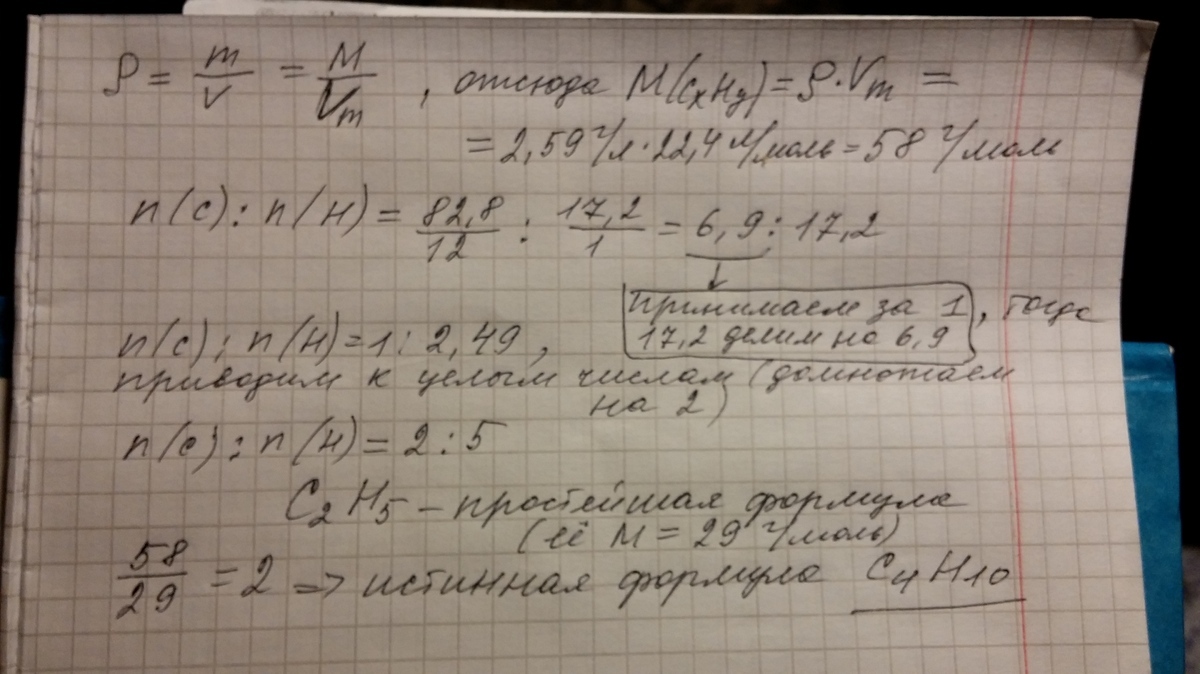 ρ = m/V = M/Vm , отсюда M(CxHy) = ρ·Vm =
= 2,59 г/л · 22,4 л/моль = 58 г/моль
n(C) : n(H) = 82,8/12 : 17,2/1 = 6,9 : 17,2
принимаем за 1, тогда
17,2 делим на 6,9
n(C) : n(H) = 1 : 2,49 ,
приводим к целым числам (домножаем
на 2)
n(C) : n(H) = 2 : 5
C2H5 – простейшая формула
(её M = 29 г/моль)
58/29 = 2 => истинная формула C4H10